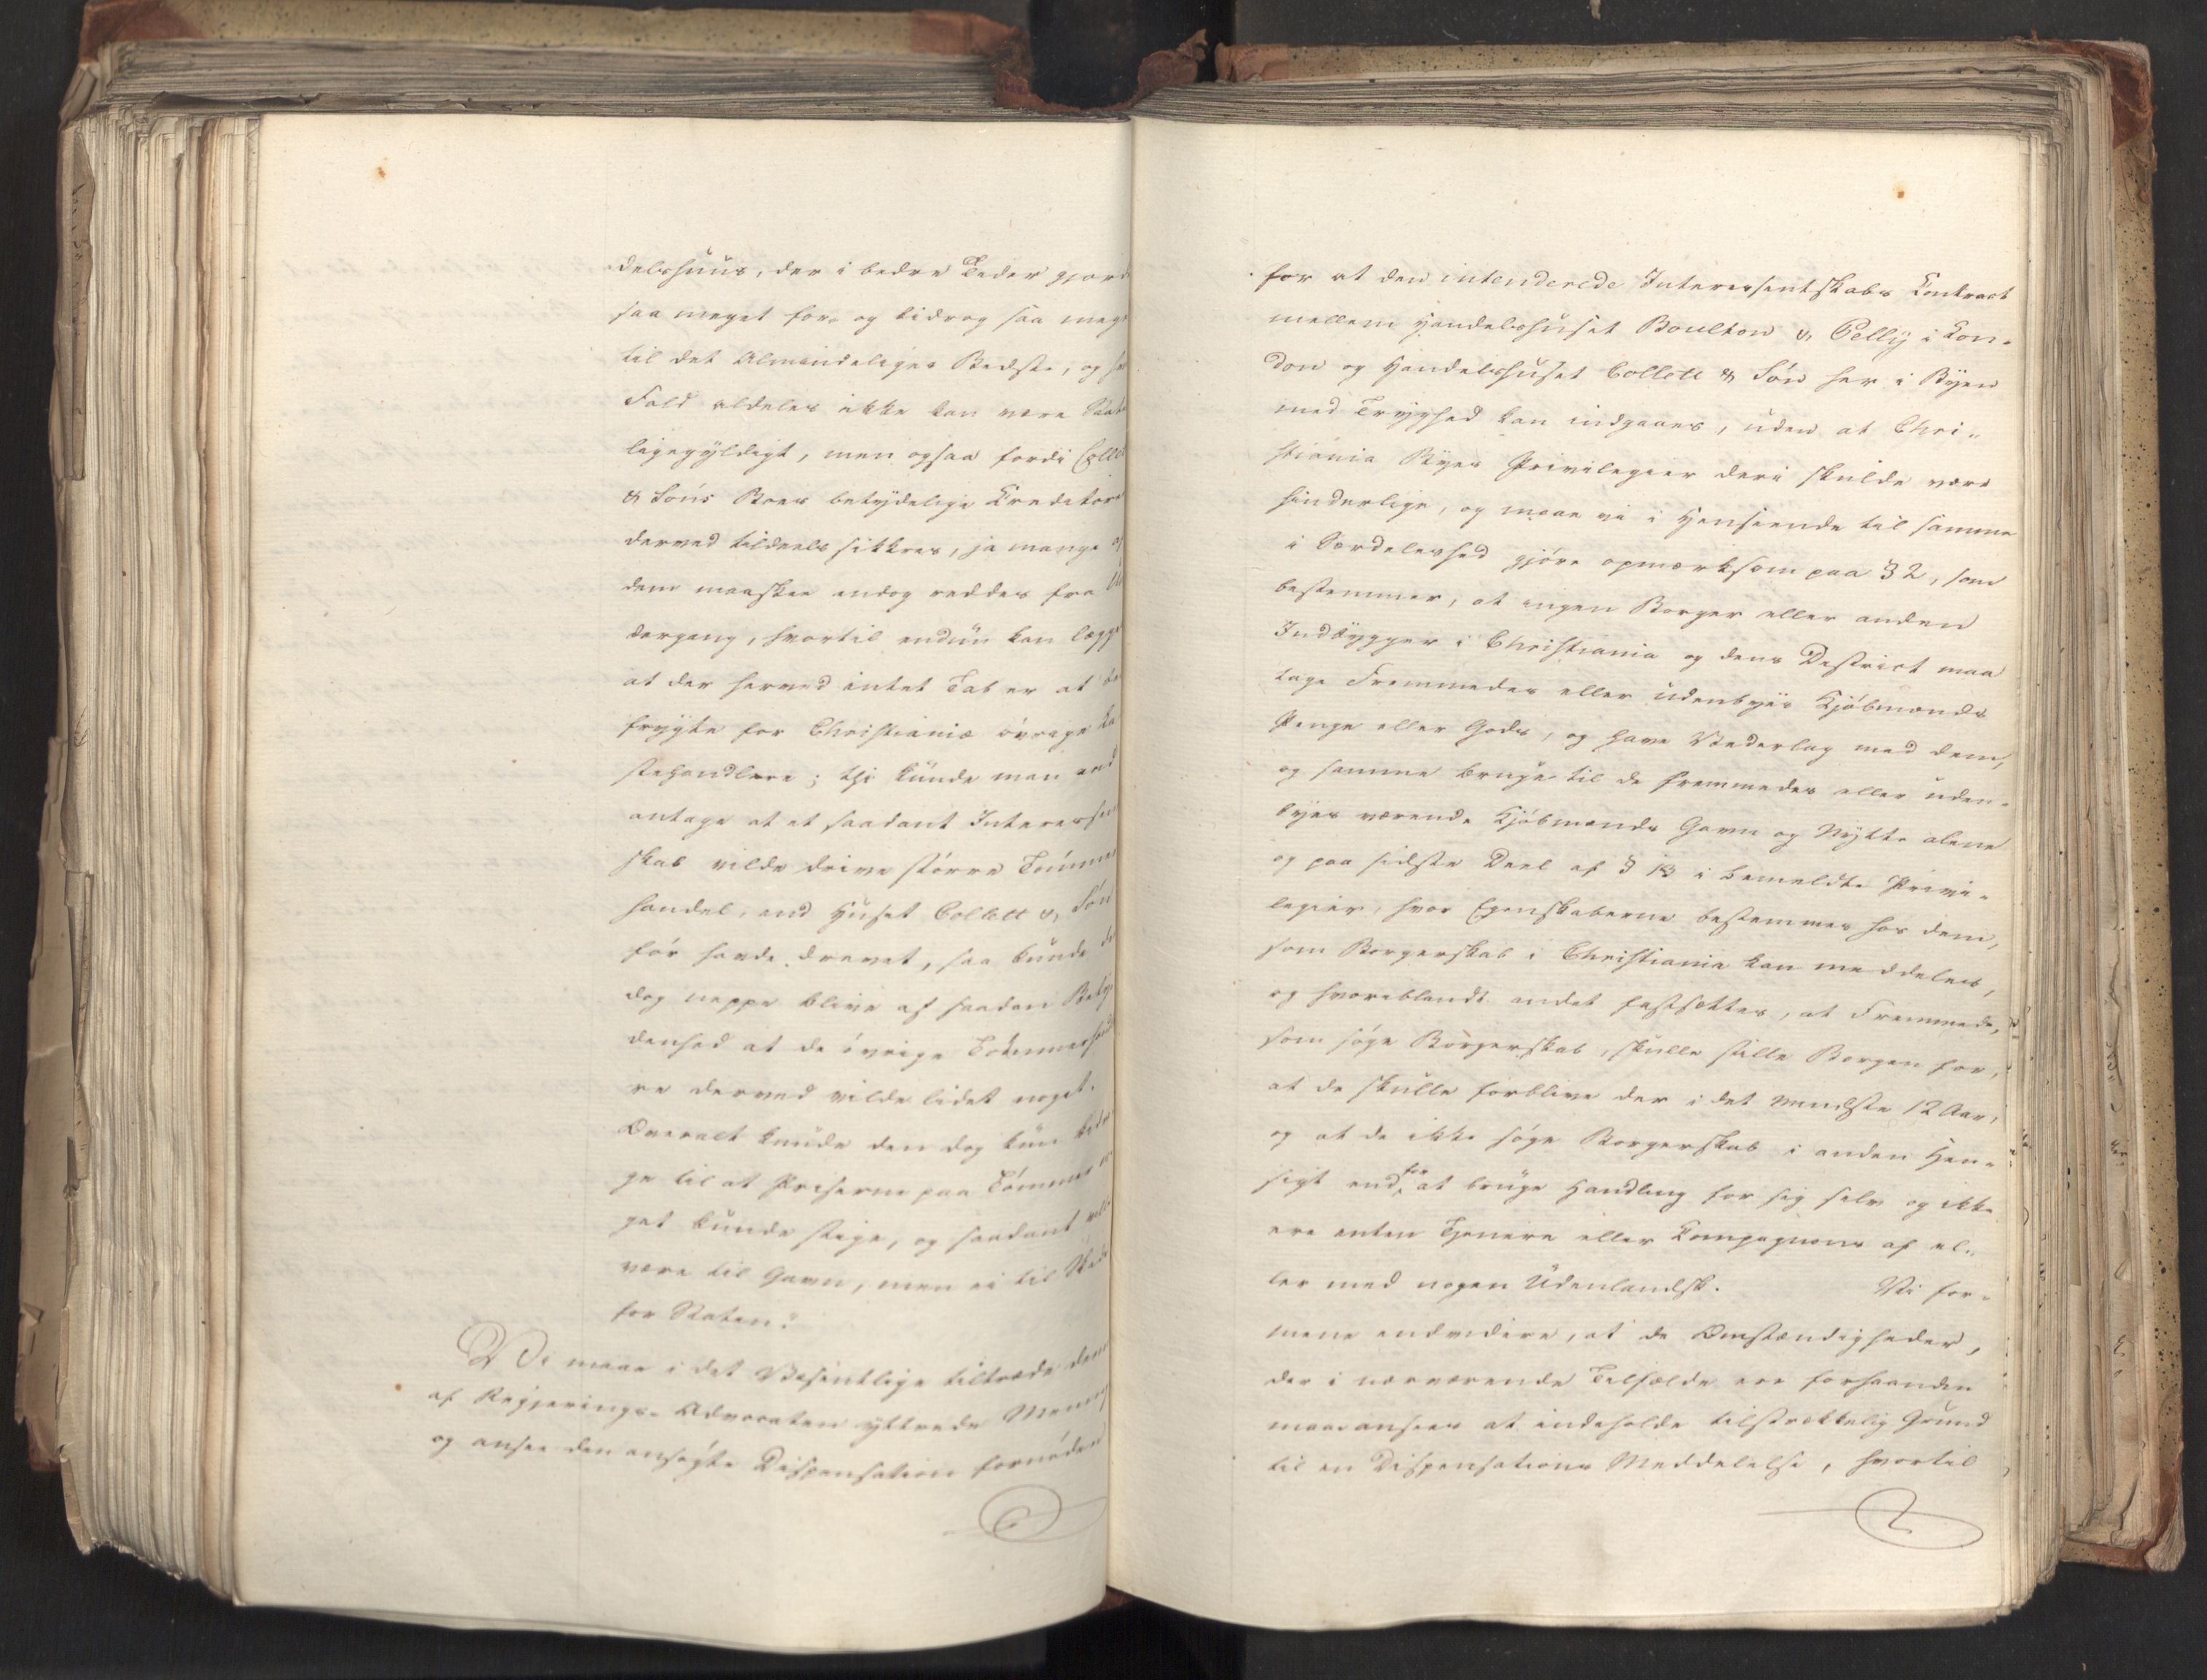 delshuus, der i bedre Tider gjord
saa meget for og bidrog saa meg
til det Almindeliges Bedste, og h
Fald aldeles ikke kan være Stat
ligegyldigt, men ogsaa fordi Colle
& Søns Boes betydelige Creditore
derved tildeels sikkres, ja mange af
dem maaskee endog reddes fra Un
dergang, hvortil endnu kan lægge
at der herved intet Tab er at be
frygte for Christiania øvrige La
stehandlere; thi kunde man end
antage at et saadant Interessen
skab vilde drive større Tømmer
handel, end Huset Collett & Søn
før havde drevet, saa kunde de
dog neppe blive af saadan Bety
denhed at de øvrige Tømmerhand
re derved vilde lidet noget.
Overalt kunde den dog kun bidra
ge til at Priserne paa Tømmer no
get kunde stige, og saadant vilde
være til Gavn, men ei til Skade
for Staten."
Vi maae i det Væsentlige tiltræde den
af Regjerings-Advocaten yttrede Mening
og ansee den ansøgte Dispensation fornøden
for at den intenderede Interessentskabs Contract
mellem Handelshuset Boulton & Pelly i Lon-
don og Handelshuset Collett & Søn her i Byen
med Tryghed kan indgaaes, uden at Chri-
stiania Byes Privilegier deri skulde være
hinderlige, og maae vi i Henseende til samme
i Særdeleshed gjøre opmærksom paa § 2, som
bestemmer, at ingen Borger eller anden
Indbygger i Christiania og dens District maa
tage Fremmedes eller udenbyes Kjøbmænds
Penge eller Gods, og have Vederlag med dem,
og samme bruge til de fremmedes eller uden-
byes værende Kjøbmænds Gavn og Nytte alene
og paa sidste Deel af § 13 i bemeldte Privi-
legier, hvor Egenskaberne bestemmes hos dem,
som Borgerskab i Christiania kan meddeles,
og hvoriblandt andet fastsættes, at Fremmede,
som søge Borgerskab, skulle stille Borgen for,
at de skulle forblive der i det mindste 12 Aar,
og at de ikke søge Borgerskab i anden Hen-
sigt end for at bruge Handling for sig selv og ikke
ere enten Tjenere eller Compagnons af el-
ler med nogen Udenlandsk. Vi for-
mene endvidere, at de Omstændigheder,
der i nærværende Tilfælde ere forhaanden
maae ansees at indeholde tilstrækkelig Grund
til en Dispensations Meddelelse, hvortil